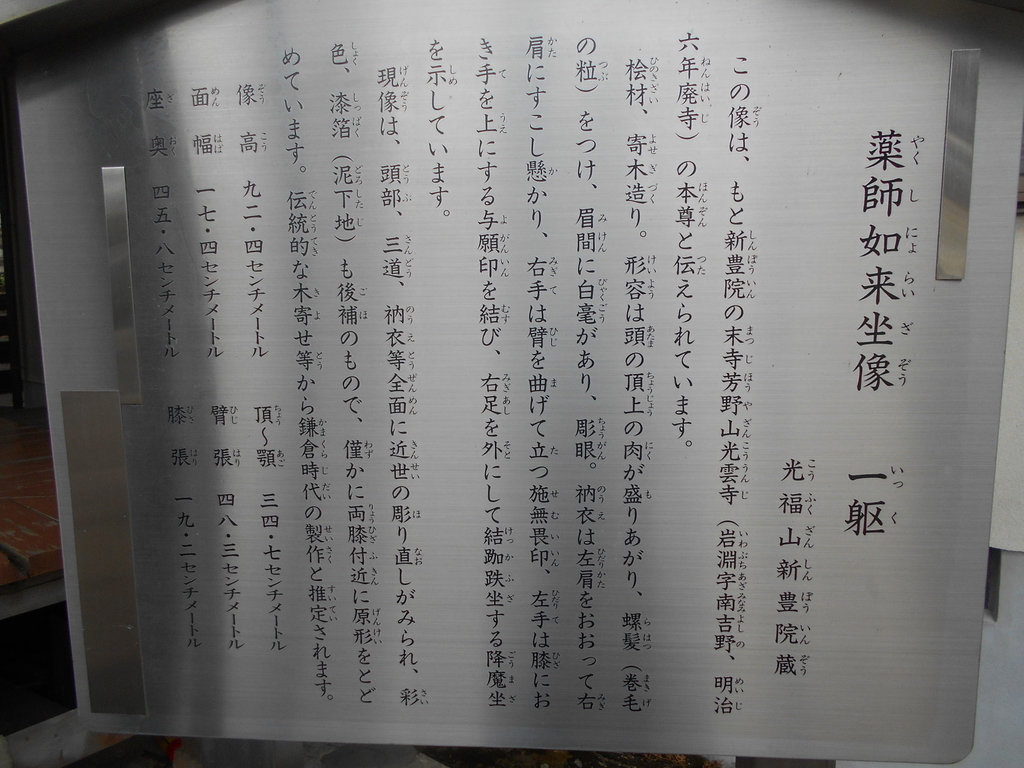 薬師如来坐像 一躯
光福山新豊院蔵
この像は、もと新豊院の末寺芳野山光雲寺（岩淵字南吉野、明治
六年廃寺）の本尊と伝えられています。
桧材、寄木造り。形容は頭の頂上の肉が盛りあがり、螺髪（巻毛
の粒）をつけ、眉間に白毫があり、彫眼。衲衣は左肩をおおって右
肩にすこし懸かり、右手は臂を曲げて立つ施無畏印、左手は膝にお
き手を上にする与願印を結び、右足を外にして結跏趺坐する降魔坐
を示しています。
現像は、頭部、三道、衲衣等全面に近世の彫り直しがみられ、彩
色、漆箔（泥下地）も後補のもので、僅かに両膝付近に原形をとど
めています。伝統的な木寄せ等から鎌倉時代の製作と推定されます。
像高 九二・四センチメートル 頂～顎 三四・七センチメートル
面幅 一七・四センチメートル 臂張 四八・三センチメートル
座奥 四五・八センチメートル 膝張 一九・二センチメートル